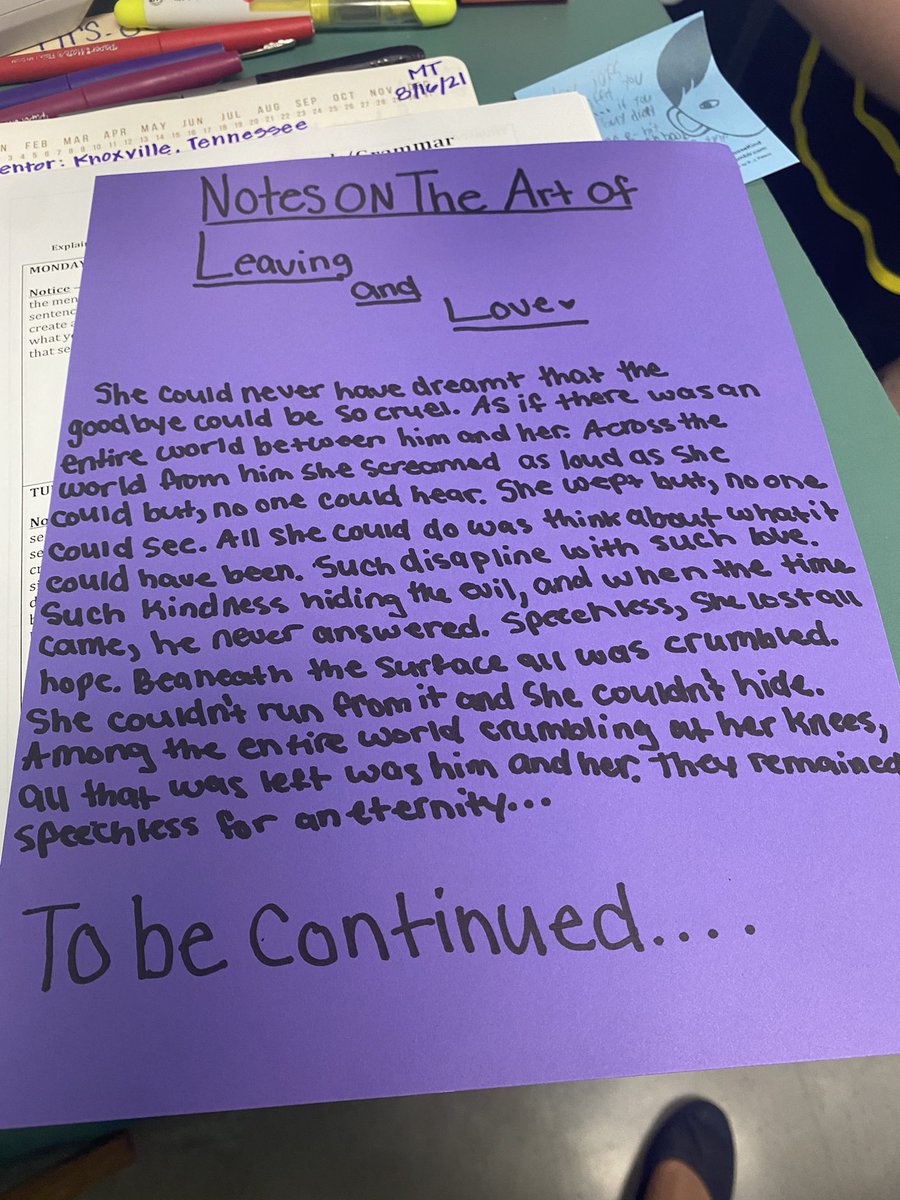 MT
8/16/21
JUN JUL AUG SEP OCT NOV
FEB MAR APR MAY
entor: Knoxville, Tennessee
/Grammar
Explai
MONDAY
Notice –
the men
sentenc
create a
what y
that se
TU
No
Notes ON The Art of
Leaving
and
Love
She could never have dreamt that the
goodbye could be so cruel. As if there was an
entire world between him and her. Across the
world from him she screamed as loud as she
could but, no one could hear. She wept but, no one
could see. All she could do was think about what it
could have been. Such disapline with such love.
Such kindness hiding the evil, and when the time
came, he never answered. Speechless, she lost all
hope. Beaneath the surface all was crumbled.
She couldn't run from it and she couldn't hide.
Among the entire world crumbling at her knees,
all that was left was him and her. They remained
speechless for an eternity...
To be Continued....